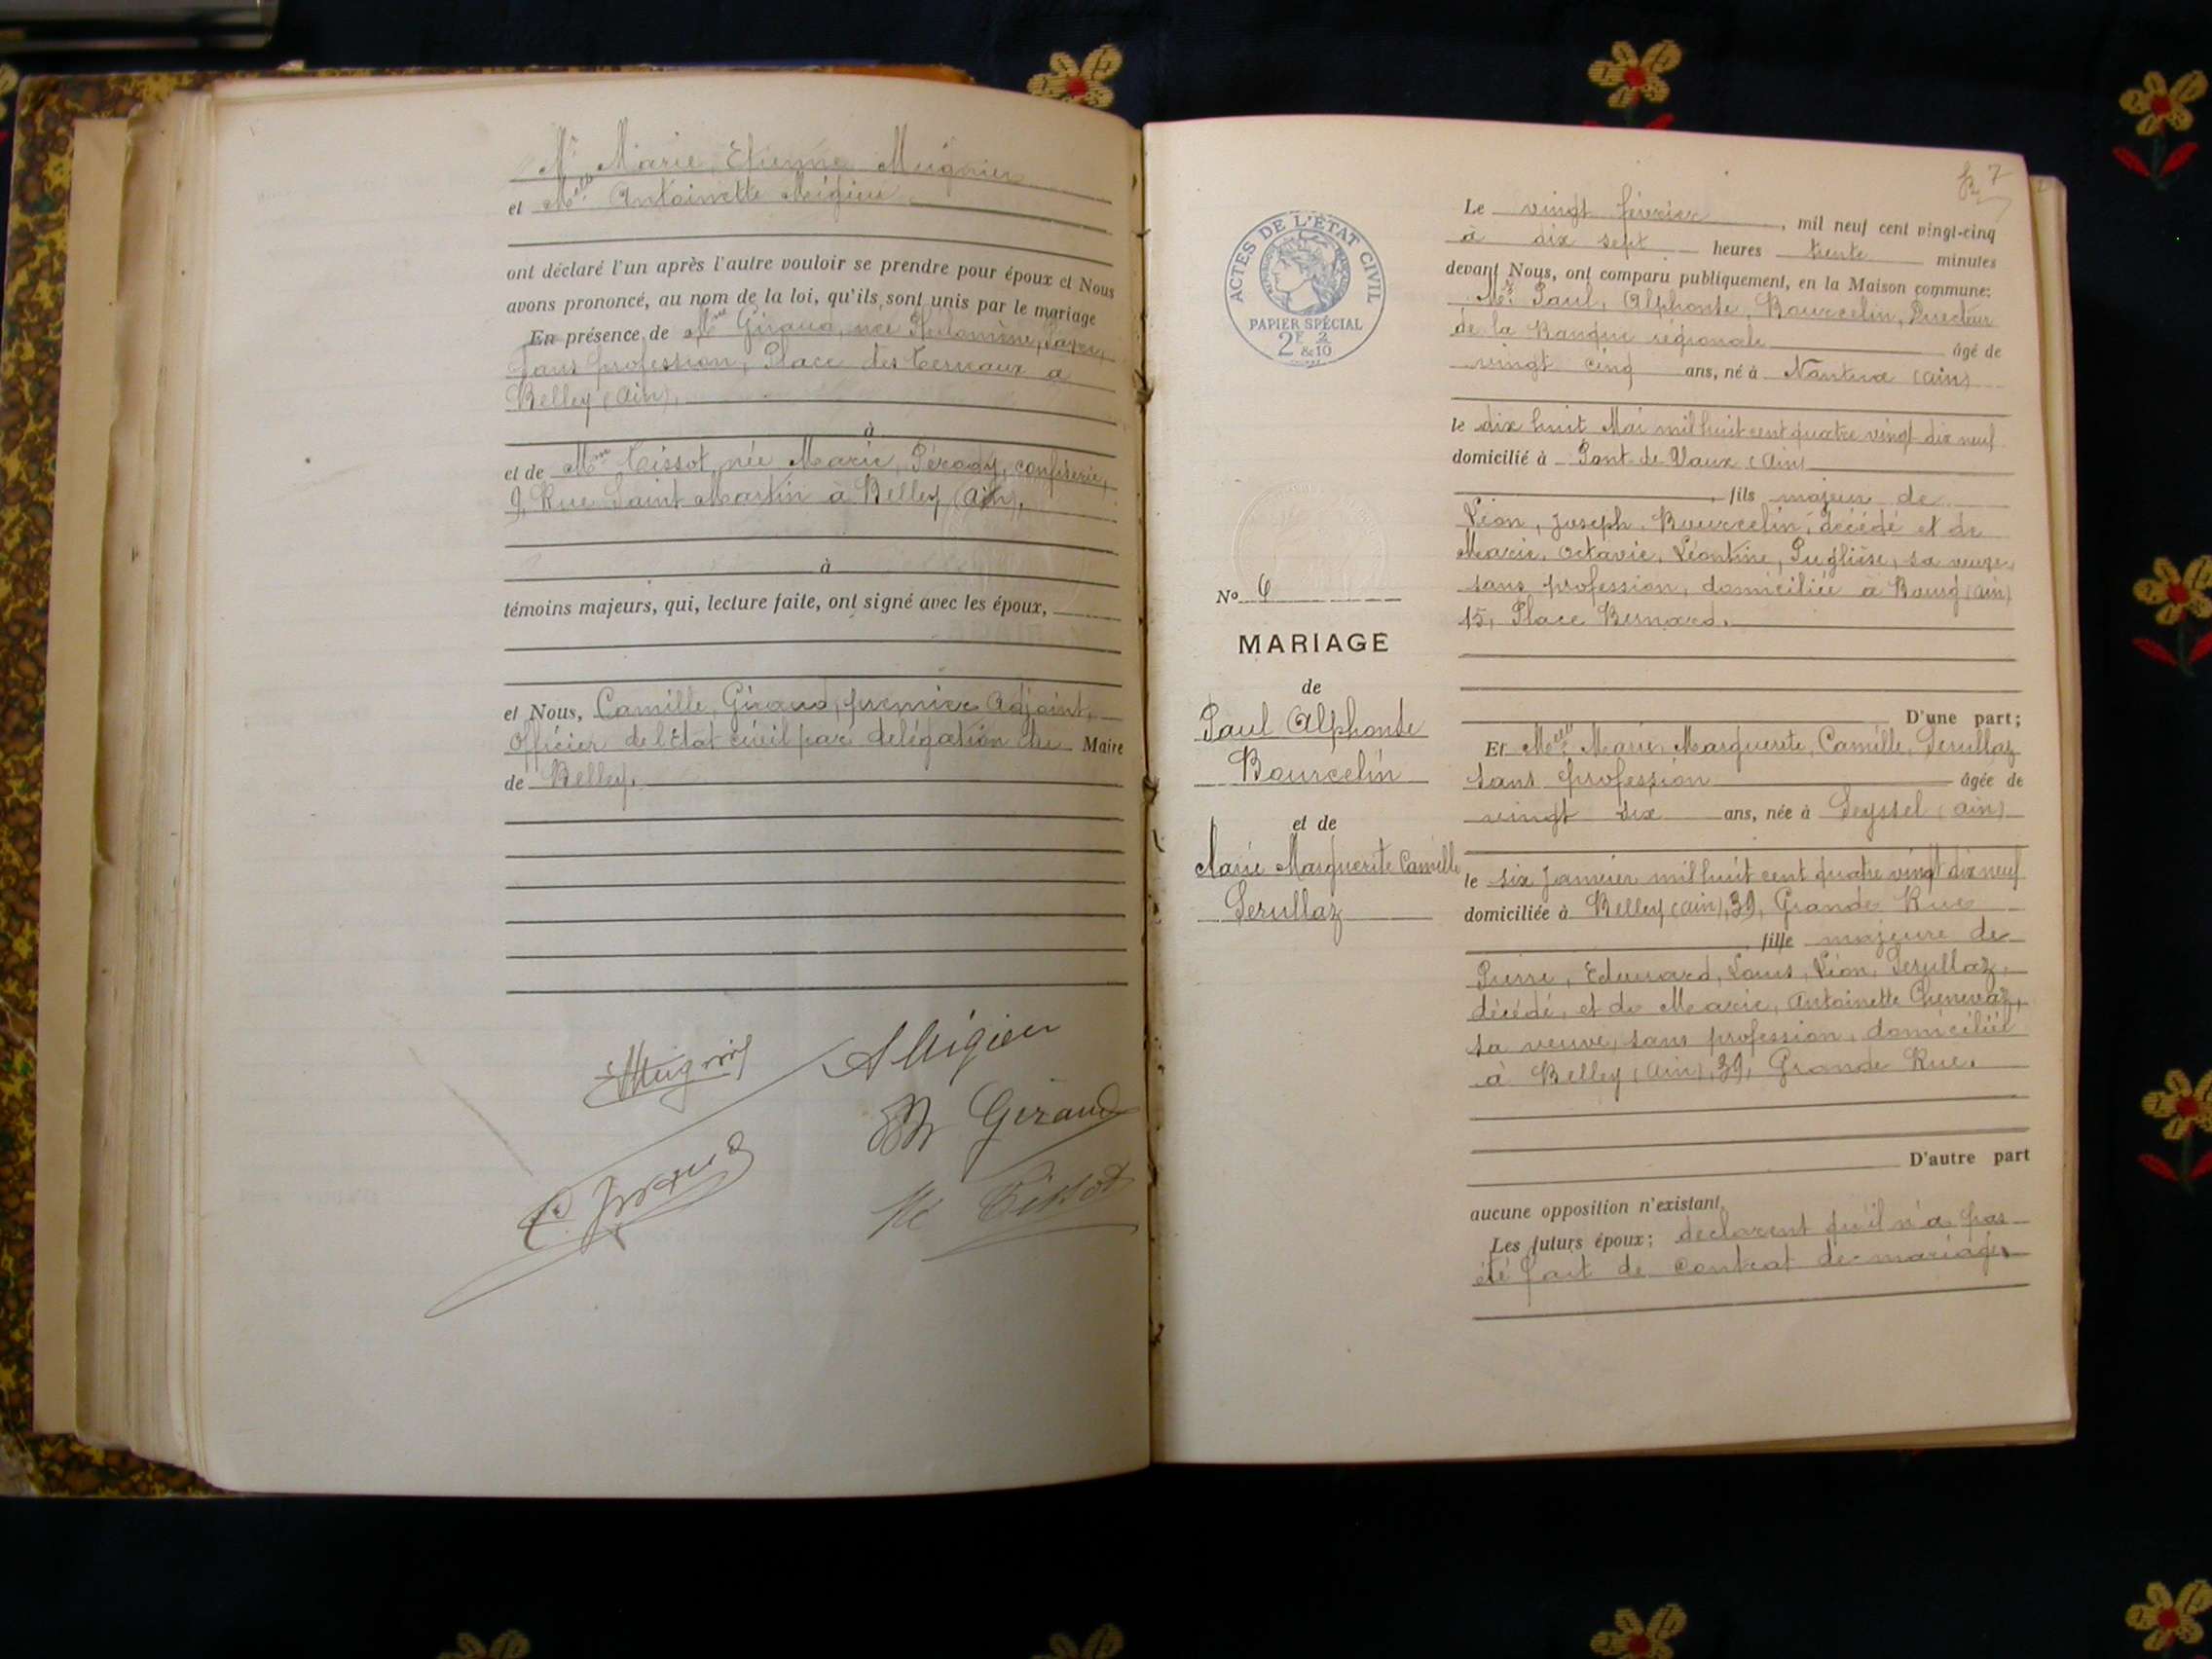 Mr Marie, Etienne Meignier
et Melle Antoinette Migieu
ont déclaré l'un après l'autre vouloir se prendre pour époux et Nous
avons prononcé, au nom de la loi, qu'ils sont unis par le mariage
En présence de Mme Giraud, née Philomène,
sans profession, Place des Terreaux à
Belley (Ain),
à
et de Mme Tissot, née Marie, Pérody, confiserie,
9, Rue Saint Martin à Belley (Ain),
à
témoins majeurs, qui, lecture faite, ont signé avec les époux,
et Nous, Camille, Giraud, premier Adjoint,
Officier de l'Etat civil par délégation du Maire
de Belley.
A Migieu
Giraud
C. Giraud
M Tissot
7
Le vingt février, mil neuf cent vingt-cinq
à dix sept heures trente minutes
devant Nous, ont comparu publiquement, en la Maison commune:
Mr Paul, Alphonse, Bourcelin, Directeur
de la Banque régionale âgé de
vingt cinq ans, né à Nantua (Ain)
le dix huit Mai mil huit cent quatre vingt dix neuf
domicilié à Pont-de-Vaux (Ain)
fils majeur de
Léon, Joseph, Bourcelin, décédé et de
Marie, Octavie, Léontine, Puglièse, sa veuve,
sans profession, domiciliée à Bourg (Ain)
15, Place Bernard.
D'une part;
Et Melle Marie, Marguerite, Camille, Serullaz
sans profession âgée de
vingt six ans, née à Seyssel (Ain)
le six Janvier mil huit cent quatre vingt dix neuf
domiciliée à Belley (Ain), 39, Grande Rue
fille majeure de
Pierre, Edouard, Louis, Léon, Serullaz,
décédé, et de Marie, Antoinette Chenevaz,
sa veuve, sans profession, domiciliée
à Belley (Ain), 39, Grande Rue.
D'autre part
aucune opposition n'existant.
Les futurs époux; déclarent qu'il n'a pas
été fait de contrat de mariage.
ACTES DE L'ÉTAT CIVIL
PAPIER SPÉCIAL
2F 2/&10
No 6
MARIAGE
de
Paul Alphonse
Bourcelin
et de
Marie Marguerite Camille
Serullaz